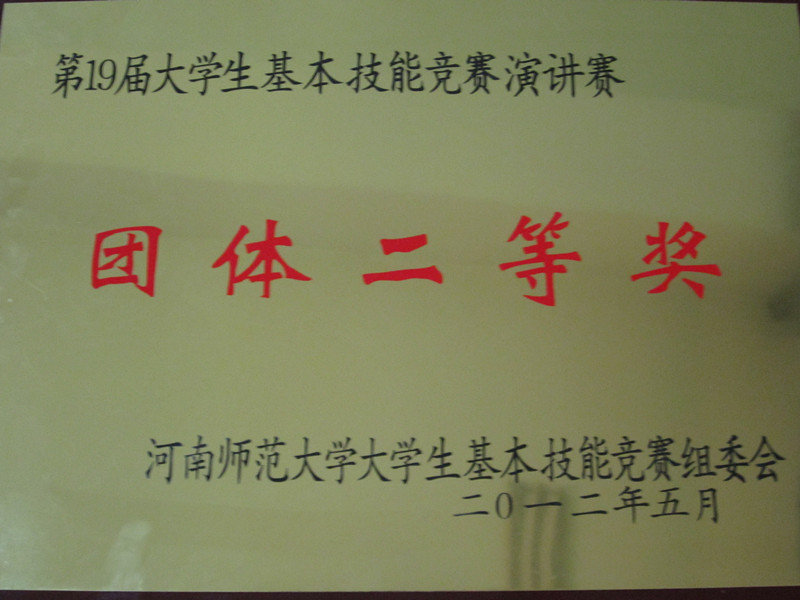 第19届大学生基本技能竞赛演讲赛
团体二等奖
河南师范大学大学生基本技能竞赛组委会
二0一二年五月